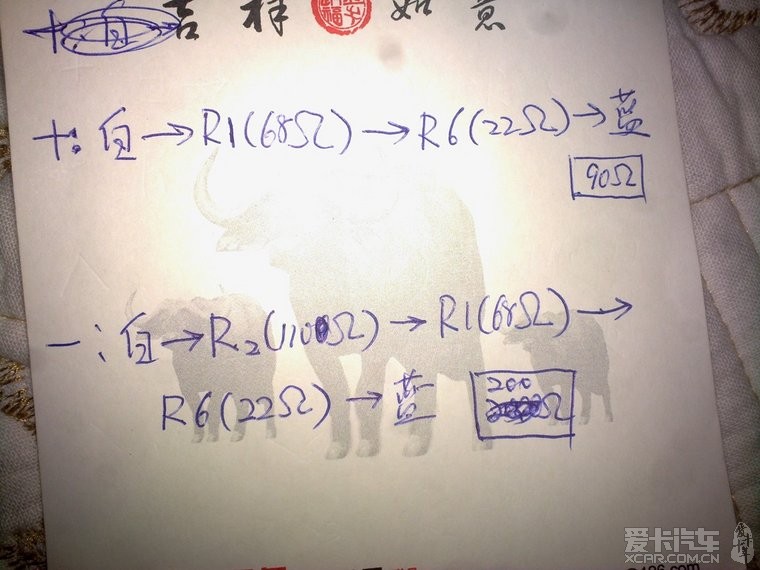 吉祥如意
+：白→R1(68Ω)→R6(22Ω)→蓝
90Ω
－：白→R2(110Ω)→R1(68Ω)→
R6(22Ω)→蓝
200
Ω
爱卡汽车
XCAR.COM.CN